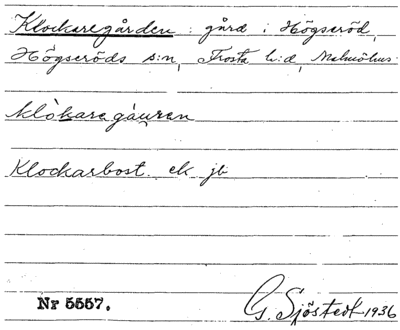 Klockaregården : gård i Högseröd,
Högseröds s:n, Frosta h:d, Malmöhus.
klòkaregáuren
Klockarbost. ek jb
Nr 5557.
G. Sjöstedt 1936